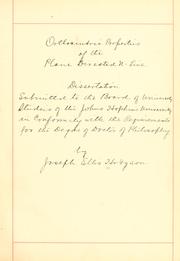 Orthocentric Properties
of the
Plane Directed N-Line
Dissertation
Submitted to the Board of University
Studies of the Johns Hopkins University
in Conformity with the Requirements
for the Degree of Doctor of Philosophy
by
Joseph Ellis